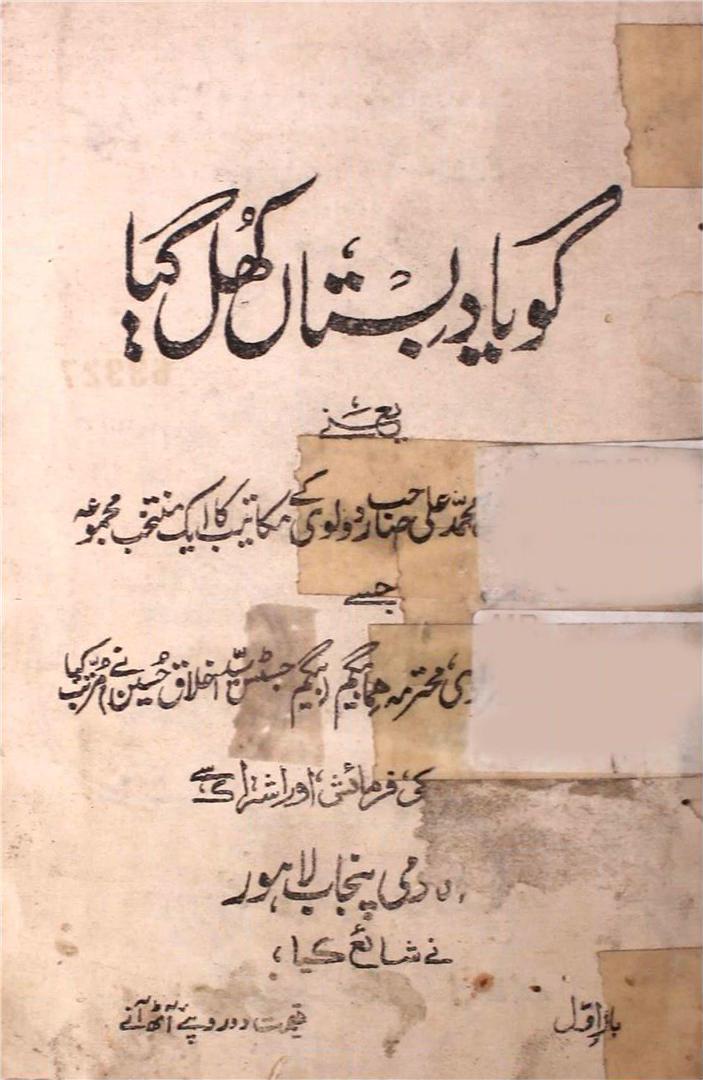 گویا دبستاں کھل گیا
یعنے
محمد علی صاحب ردولوی کے مکاتیب کا ایک منتخب مجموعہ
جسے
محترمہ ہما بیگم (بیگم جسٹس سید اخلاق حسین) نے مرتب کیا
کی فرمائش اور اشتراک سے
دمی پنجاب لاہور
نے شائع کیا،
بار اوّل
قیمت دو روپے آٹھ آنے